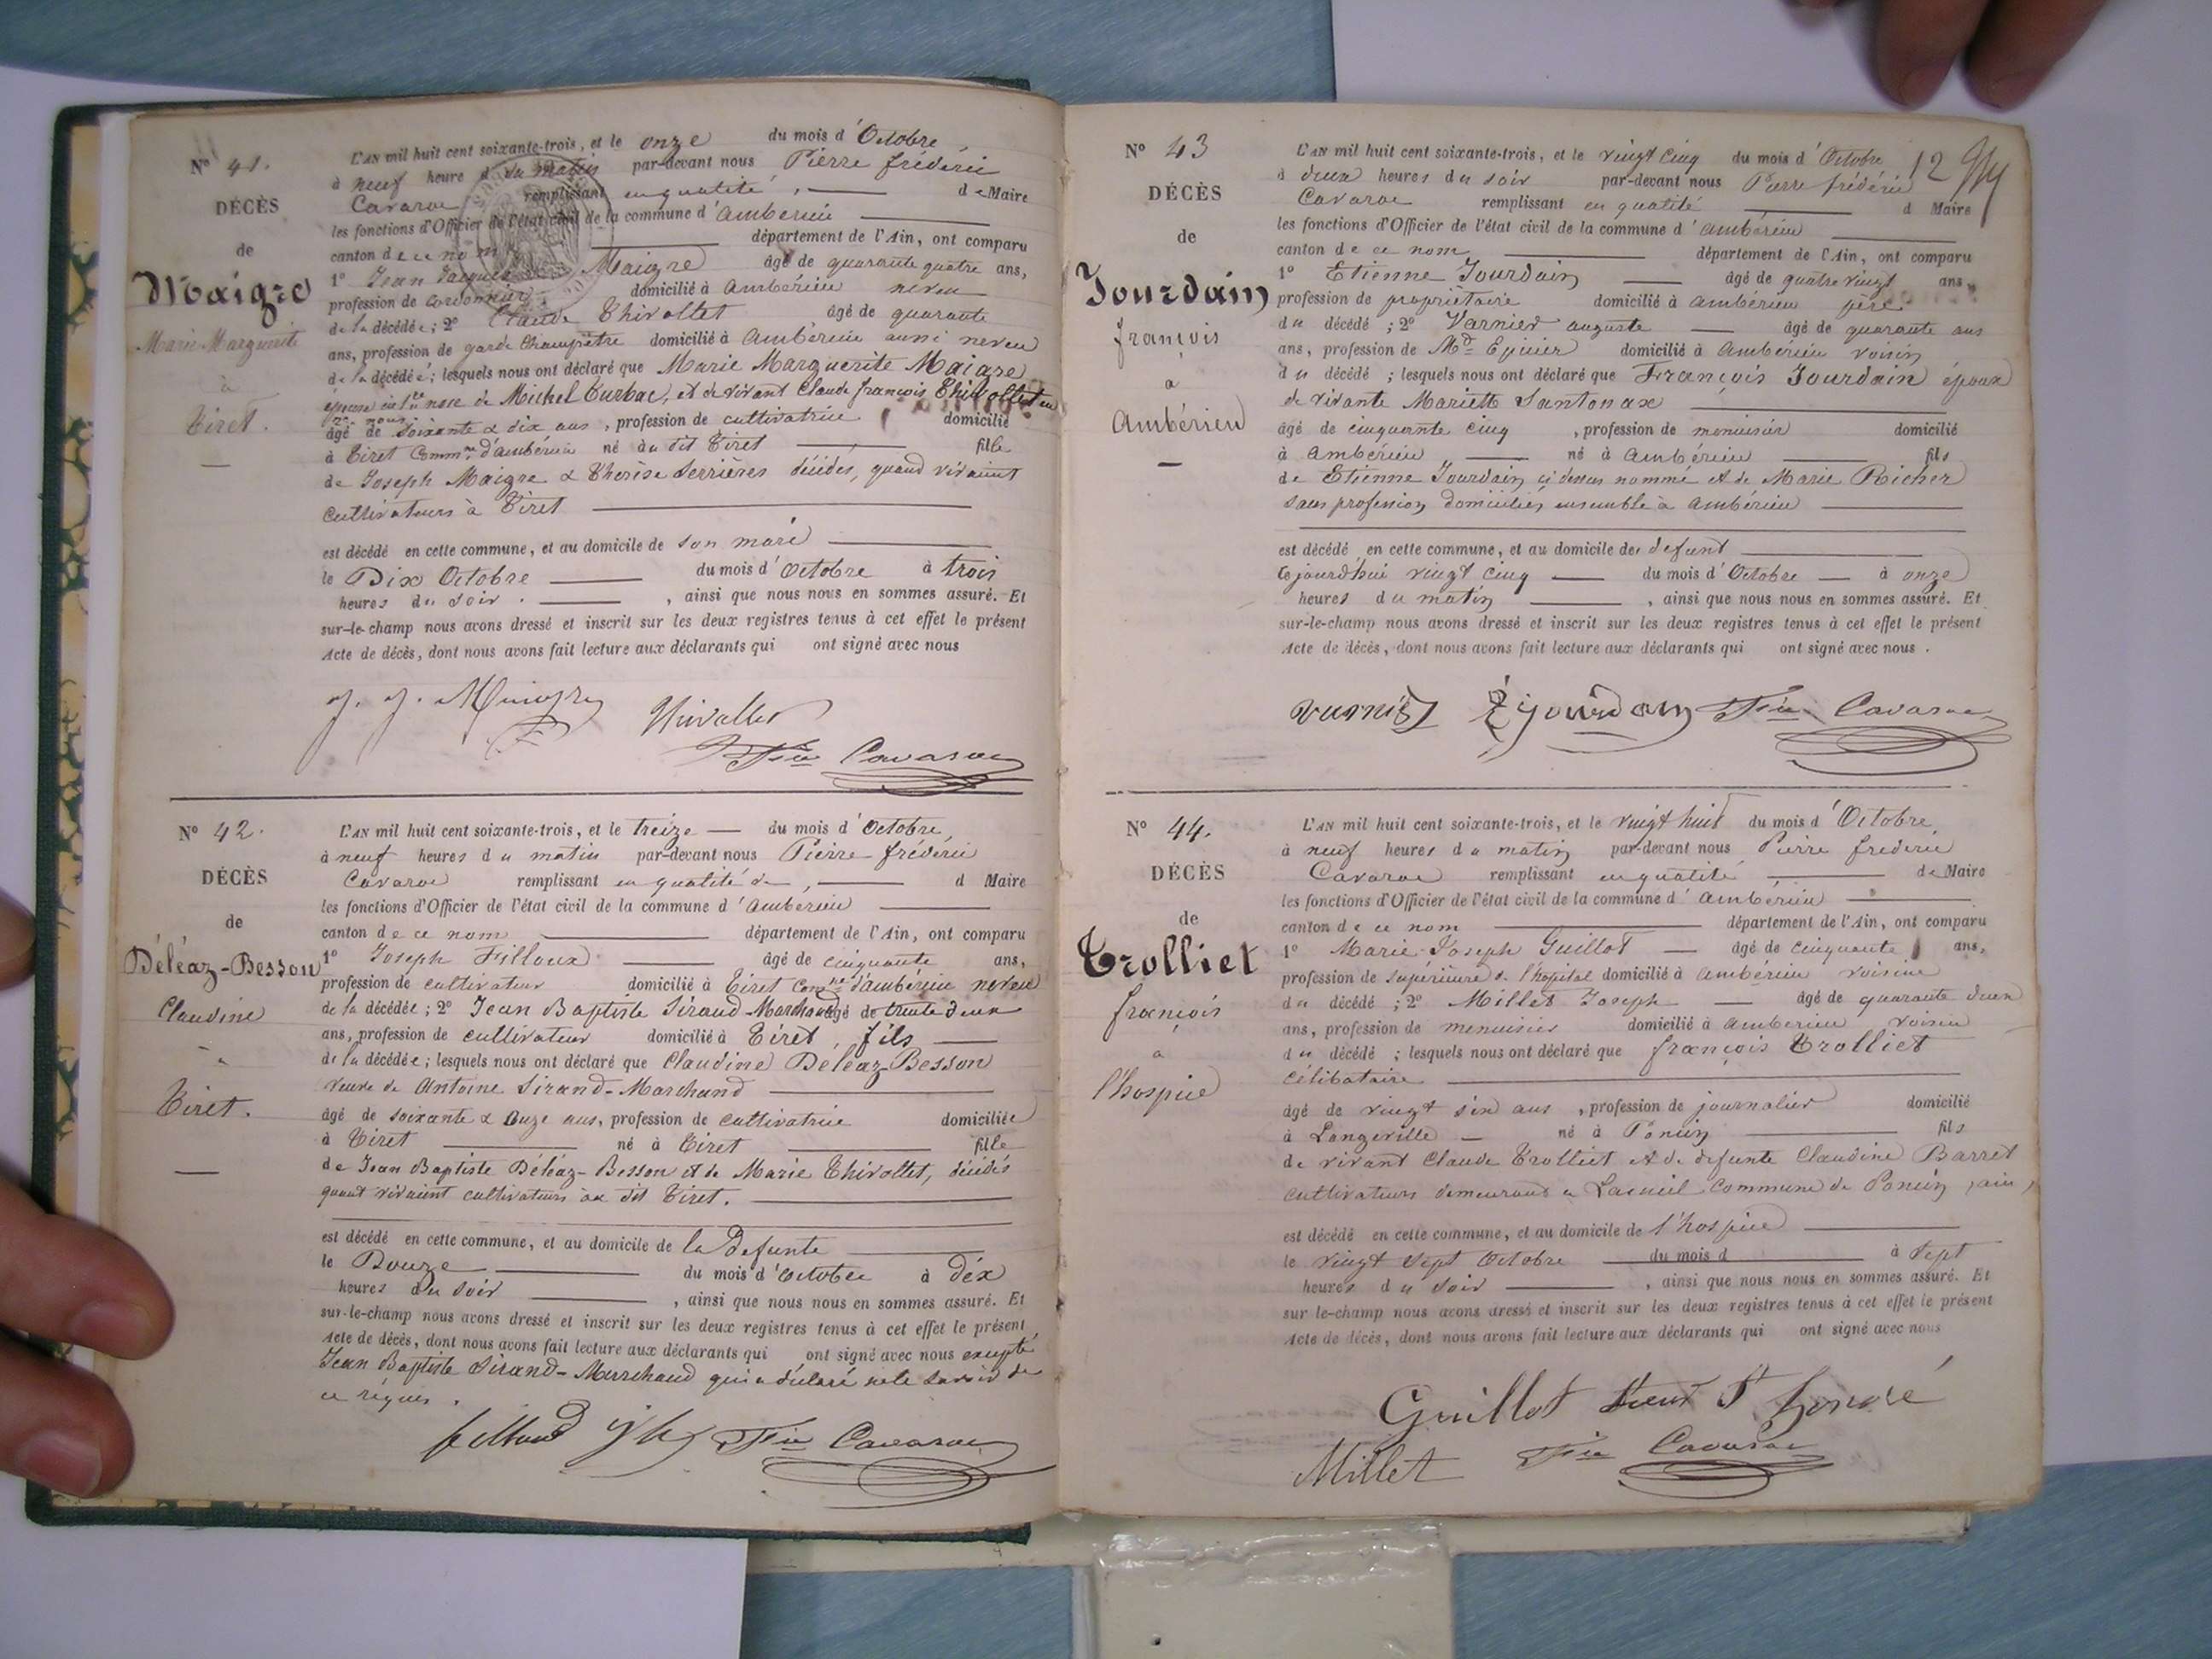 N° 41.
DÉCÈS
de
Maigre
Marie Marguerite
à
Tiret.
L'AN mil huit cent soixante-trois, et le onze du mois d'Octobre,
à neuf heure d du matin par-devant nous Pierre frédéric
Cavaroc remplissant en qualité, d e Maire
les fonctions d'Officier de l'état civil de la commune d'ambérieu
canton de ce nom département de l'Ain, ont comparu
1° Jean Jacques Maigre âgé de quarante quatre ans,
profession de cordonnier, domicilié à ambérieu neveu
de la décédée; 2° Claude Thivollet âgé de quarante
ans, profession de garde champêtre domicilié à ambérieu aussi neveu
de la décédée; lesquels nous ont déclaré que Marie Marguerite Maigre
épouse en 1ère noce de Michel Curbac, et de vivant Claude françois Thivollet en
2e noces
âgé de soixante & dix ans, profession de cultivatrice domicilié
à Tiret Comm.ne d'ambérieu né au dit Tiret fille
de Joseph Maigre & Thérèse Serrières décédés, quand vivaient
cultivateurs à Tiret
est décédé en cette commune, et au domicile de son mari
le Dix Octobre du mois d'Octobre à trois
heures du soir, ainsi que nous nous en sommes assuré. Et
sur-le-champ nous avons dressé et inscrit sur les deux registres tenus à cet effet le présent
Acte de décès, dont nous avons fait lecture aux déclarants qui ont signé avec nous
J. J. Maigre Thivollet
Cavaroc
N° 42.
DÉCÈS
de
Déléaz-Besson
Claudine
à
Tiret.
L'AN mil huit cent soixante-trois, et le treize du mois d'Octobre,
à neuf heures du matin par-devant nous Pierre frédéric
Cavaroc remplissant en qualité de, d Maire
les fonctions d'Officier de l'état civil de la commune d'ambérieu
canton de ce nom département de l'Ain, ont comparu
1° Joseph Filloux âgé de cinquante ans,
profession de cultivateur domicilié à Tiret Com.ne d'ambérieu neveu
de la décédée; 2° Jean Baptiste Sirand-Marchand âgé de trente deux
ans, profession de cultivateur domicilié à Tiret, fils
de la décédée; lesquels nous ont déclaré que Claudine Déléaz Besson
veuve de Antoine Sirand-Marchand
âgé de soixante & onze ans, profession de cultivatrice domiciliée
à Tiret né à Tiret fille
de Jean Baptiste Déléaz-Besson et de Marie Thivollet, décédés
quand vivaient cultivateurs au dit Tiret.
est décédé en cette commune, et au domicile de la defunte
le Douze du mois d'octobre à dix
heures du soir, ainsi que nous nous en sommes assuré. Et
sur-le-champ nous avons dressé et inscrit sur les deux registres tenus à cet effet le présent
Acte de décès, dont nous avons fait lecture aux déclarants qui ont signé avec nous excepté
Jean Baptiste Sirand-Marchand qui a déclaré ne le savoir de
ce réquis.
filloud Cavaroc
12
N° 43
DÉCÈS
de
Jourdain
françois
à
Ambérieu
L'AN mil huit cent soixante-trois, et le vingt cinq du mois d'Octobre
à deux heures du soir par-devant nous Pierre frédéric
Cavaroc remplissant en qualité d Maire
les fonctions d'Officier de l'état civil de la commune d'ambérieu
canton de ce nom département de l'Ain, ont comparu
1° Etienne Jourdain âgé de quatre vingt ans,
profession de propriétaire domicilié à ambérieu père
du décédé; 2° Varnier auguste âgé de quarante ans
ans, profession de Md Epicier domicilié à ambérieu voisin
du décédé; lesquels nous ont déclaré que François Jourdain époux
de vivante Mariette Santonax
âgé de cinquante cinq, profession de menuisier domicilié
à ambérieu né à ambérieu fils
de Etienne Jourdain ci dessus nommé et de Marie Richer
sans profession domiciliés ensemble à ambérieu
est décédé en cette commune, et au domicile de defunt
cejourd'hui vingt cinq du mois d'Octobre à onze
heures du matin, ainsi que nous nous en sommes assuré. Et
sur-le-champ nous avons dressé et inscrit sur les deux registres tenus à cet effet le présent
Acte de décès, dont nous avons fait lecture aux déclarants qui ont signé avec nous.
Varnier E jourdain Cavaroc
N° 44.
DÉCÈS
de
Trolliet
françois
à
l'hospice
L'AN mil huit cent soixante-trois, et le vingt huit du mois d'Octobre,
à neuf heures du matin par-devant nous Pierre frédéric
Cavaroc remplissant en qualité de Maire
les fonctions d'Officier de l'état civil de la commune d'ambérieu
canton de ce nom département de l'Ain, ont comparu
1° Marie-Joseph Guillot âgé de cinquante ans,
profession de supérieure de l'hopital domicilié à ambérieu voisine
du décédé; 2° Millet Joseph âgé de quarante deux
ans, profession de menuisier domicilié à ambérieu voisin
du décédé; lesquels nous ont déclaré que françois Trolliet
célibataire
âgé de vingt six ans, profession de journalier domicilié
à Longeville né à Poncin fils
de vivant Claude Trolliet et de defunte Claudine Barret
cultivateurs demeurant à commune de Poncin, ain,
est décédé en cette commune, et au domicile de l'hospice
le vingt sept Octobre du mois d à Sept
heures du soir, ainsi que nous nous en sommes assuré. Et
sur-le-champ nous avons dressé et inscrit sur les deux registres tenus à cet effet le présent
Acte de décès, dont nous avons fait lecture aux déclarants qui ont signé avec nous
Guillot Soeur St honoré
Millet Cavaroc